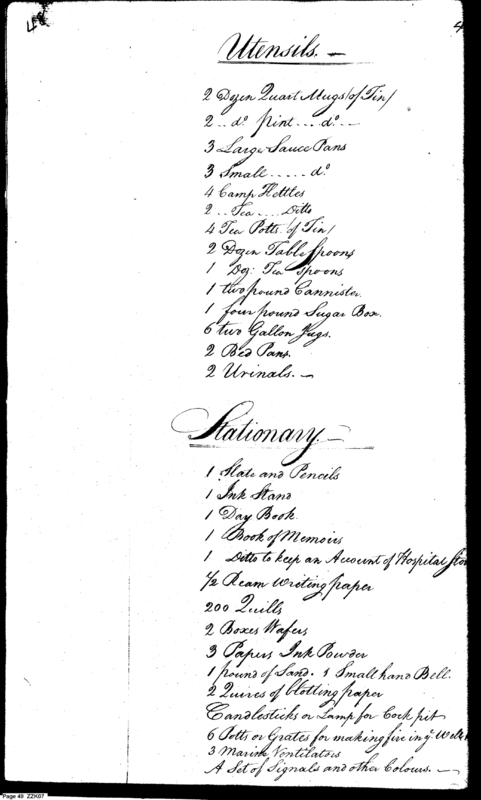 48
4
Utensils. —
2 Dozen Quart Mugs (of Tin)
2 .. do. pint ... do. —
3 Large Sauce Pans
3 Small ..... do.
4 Camp Kettles
2 .. Tea .... Ditto
4 Tea Potts. (of Tin)
2 Dozen Table Spoons
1 Doz: Tea Spoons
1 two pound Cannister.
1 four pound Sugar Box.
6 two Gallon Jugs.
2 Bed Pans.
2 Urinals. —
Stationary. —
1 Slate and Pencils
1 Ink Stand
1 Day Book
1 Book of Memoirs
1 Ditto to keep an Account of Hospital Stor
1/2 Ream Writing paper
200 Quills
2 Boxes Wafers
3 Papers Ink Powder
1 pound of Sand. 1 Small hand Bell.
2 Quires of blotting paper
Candlesticks or Lamp for Cock pit
6 Potts or Grates for making fire in ye. Well
3 Marine Ventilators
A Set of Signals and other Colours. —
Page 49 ZZK07